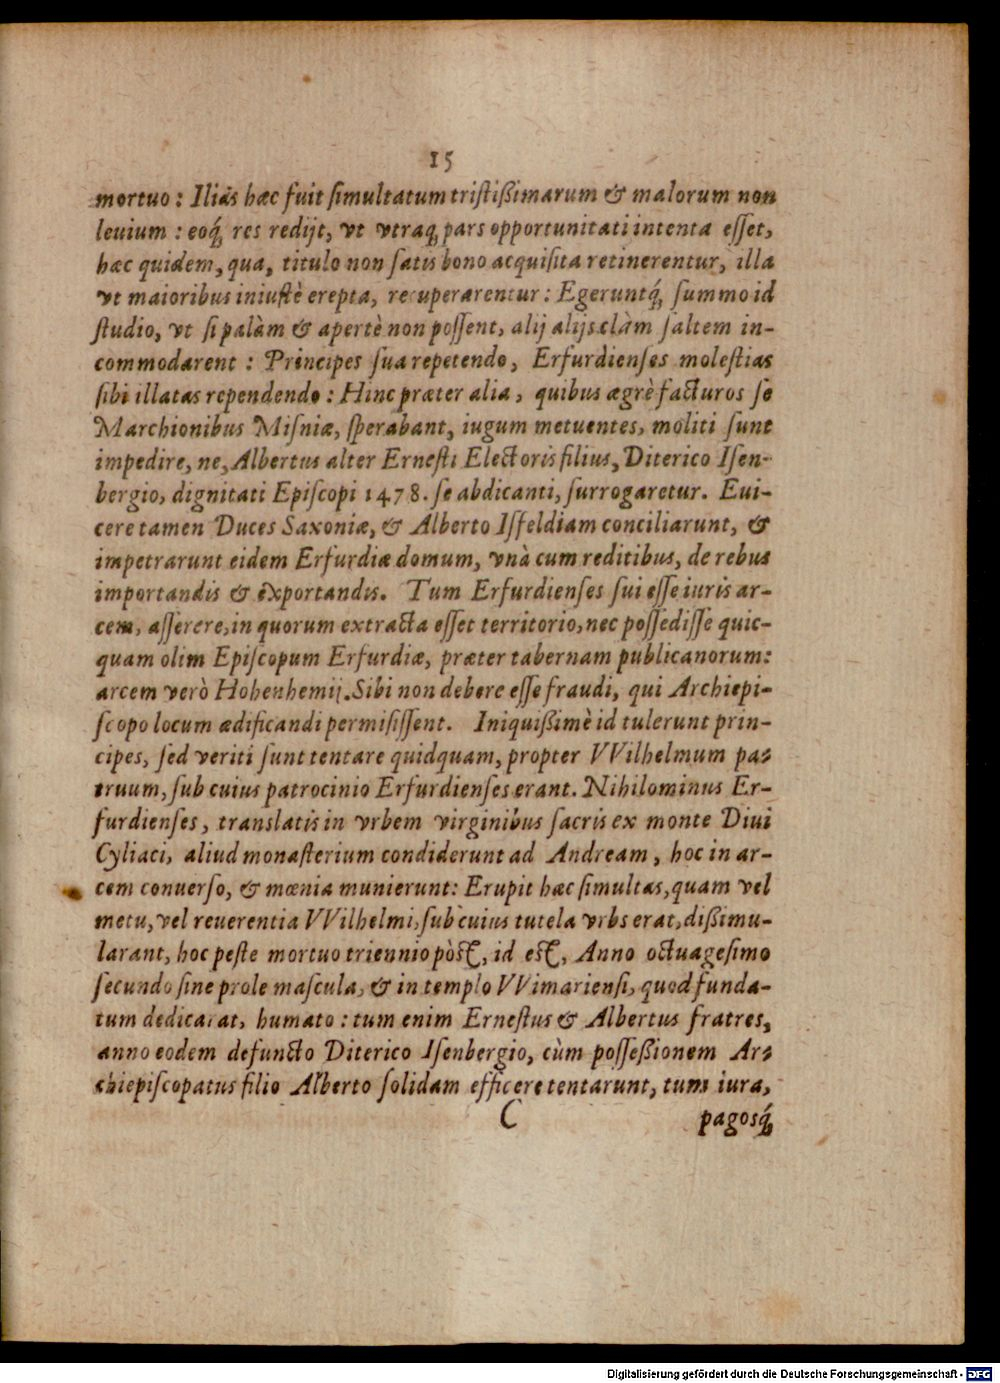 15
mortuo: Iliás hæc fuit ſimultatum triſtißimarum & malorum non
leuium: eoq́; res redijt, vt vtraq; pars opportunitati intenta eſſet,
hæc quidem, qua, titulo non ſatis bono acquiſita retinerentur, illa
vt maioribus iniuſtè erepta, recuperarentur: Egeruntq́; ſummo id
ſtudio, vt ſi palàm & apertè non poſſent, alij alijs clàm ſaltem in-
commodarent: Principes ſua repetendo, Erfurdienſes moleſtias
ſibi illatas rependendo: Hinc præter alia, quibus ægrè facturos ſe
Marchionibus Miſniæ, ſperabant, iugum metuentes, moliti ſunt
impedire, ne, Albertus alter Erneſti Electoris filius, Diterico Iſen-
bergio, dignitati Epiſcopi 1478. ſe abdicanti, ſurrogaretur. Eui-
cere tamen Duces Saxoniæ, & Alberto Iſfeldiam conciliarunt, &
impetrarunt eidem Erfurdiæ domum, vnà cum reditibus, de rebus
importandis & exportandis. Tum Erfurdienſes ſui eſſe iuris ar-
cem, aſſerere, in quorum extracta eſſet territorio, nec poſſediſſe quic-
quam olim Epiſcopum Erfurdiæ, præter tabernam publicanorum:
arcem verò Hohenhemij. Sibi non debere eſſe fraudi, qui Archiepi-
ſcopo locum ædificandi permiſiſſent. Iniquißimè id tulerunt prin-
cipes, ſed veriti ſunt tentare quidquam, propter VVilhelmum pa-
truum, ſub cuius patrocinio Erfurdienſes erant. Nihilominus Er-
furdienſes, translatis in vrbem virginibus ſacris ex monte Diui
Cyliaci, aliud monaſterium condiderunt ad Andream, hoc in ar-
cem conuerſo, & mœnia munierunt: Erupit hæc ſimultas, quam vel
metu, vel reuerentia VVilhelmi, ſub cuius tutela vrbs erat, dißimu-
larant, hoc peſte mortuo triennio pòſt, id eſt, Anno octuageſimo
ſecundo ſine prole maſcula, & in templo VVimarienſi, quod funda-
tum dedicarat, humato: tum enim Erneſtus & Albertus fratres,
anno eodem defuncto Diterico Iſenbergio, cùm poſſeßionem Ar-
chiepiſcopatus filio Alberto ſolidam efficere tentarunt, tum iura,
C pagosq́;
Digitalisierung gefördert durch die Deutsche Forschungsgemeinschaft - DFG